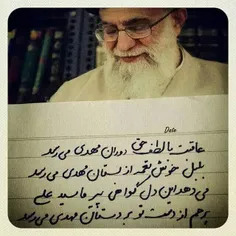 Date
عاقبت با لطف حق دوران مهدی می رسد
بلبل خوش نغمه از بستان مهدی می رسد
می دهد این دل گواهی سید علی
پرچم از دست تو بر دستان مهدی می رسد